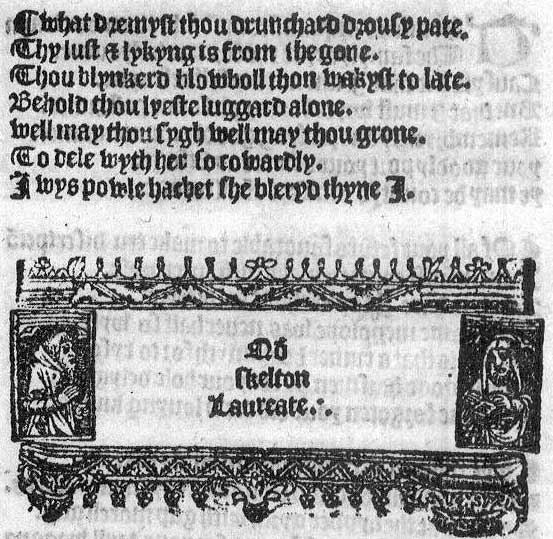 ¶ what dremyst thou drunchard drousy pate.
Thy lust & lykyng is from the gone.
Thou blynkerd blowboll thou wakyst to late.
Behold thou lyeste luggard alone.
well may thou sygh well may thou grone.
To dele wyth her so cowardly.
I wys powle hachet she bleryd thyne I.
Qď
skelton
Laureate ∴